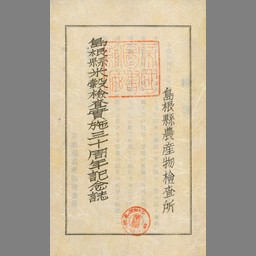 島根縣農產物檢查所
島根縣米穀檢查實施三十周年記念誌